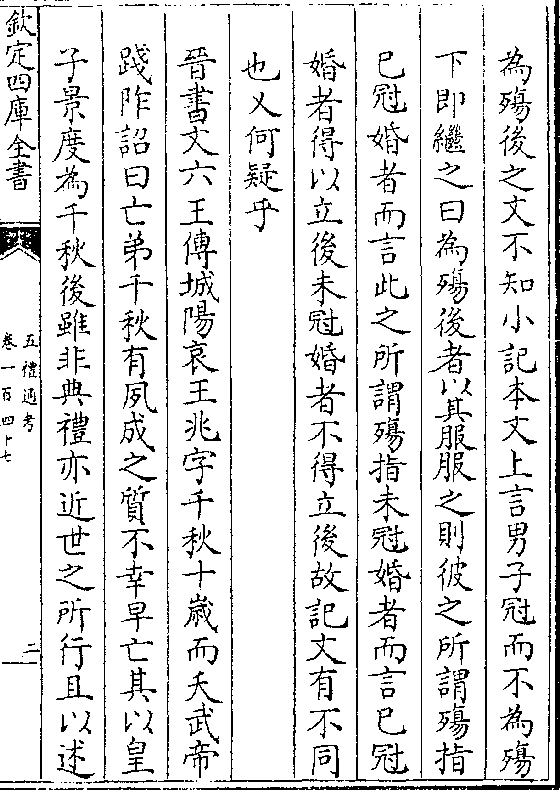 為殤後之文不知小記本文上言男子冠而不為殤
下即繼之曰為殤後者以其服服之則彼之所謂殤指
已冠婚者而言此之所謂殤指未冠婚者而言已冠
婚者得以立後未冠婚者不得立後故記文有不同
也又何疑乎
晉書文六王傳城陽哀王兆字千秋十歲而夭武帝
踐阼詔曰亡弟千秋有夙成之質不幸早亡其以皇
子景度為千秋後雖非典禮亦近世之所行且以述
欽定四庫全書
五禮通考
卷一百四十七
二